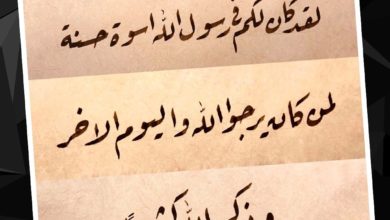 لقد كان لكم في رسول الله اسوة حسنة
لمن كان يرجوا الله واليوم الاخر
وذكر الله كثيرًا